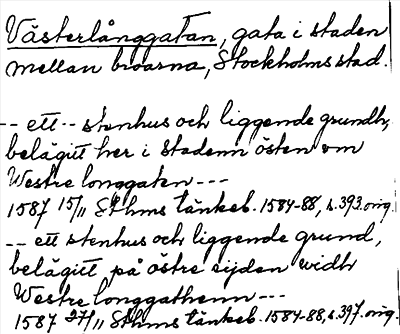 Västerlånggatan, gata i staden
mellan broarna, Stockholms stad.
-- ett -- stenhus och liggende grundh,
belägitt her i Stadenn östen om
Westre longgaten ---
1587 15/11 Sthms tänkeb. 1584-88, s. 393. orig.
-- ett stenhus och liggende grund,
belägitt på östre sijden widh
Westre longgathenn ---
1587 27/11 Sthms tänkeb. 1584-88, s. 397. orig.